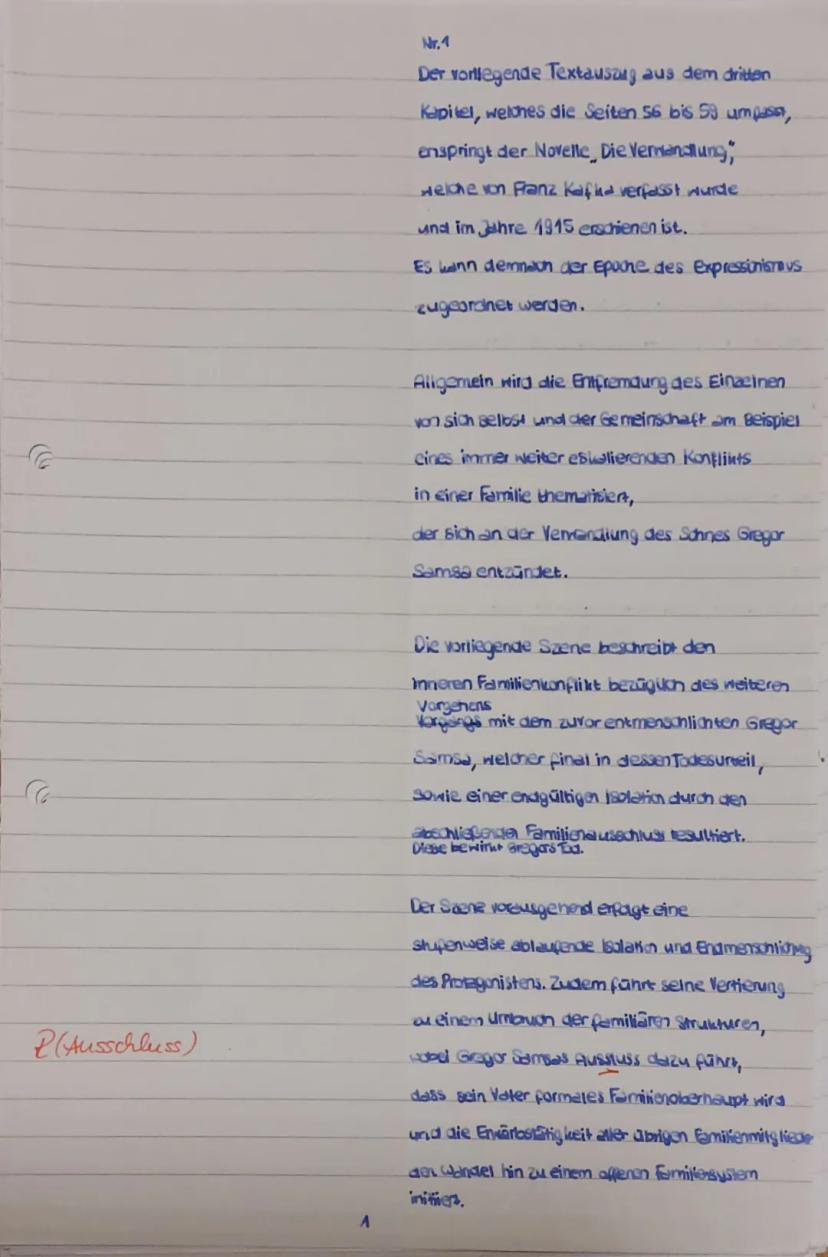 Nr.1
Der vorliegende Textauszug aus dem dritten
Kapitel, welches die Seiten 56 bis 59 umfasst,
enspringt der Novelle „Die Verwandlung",
welche von Franz Kafka verfasst wurde
und im Jahre 1915 erschienen ist.
Es kann demnach der Epoche des Expressionismus
zugeordnet werden.
Allgemein wird die Entfremdung des Einzelnen
von sich selbst und der Gemeinschaft am Beispiel
eines immer weiter eskalierenden Konflikts
in einer Familie thematisiert,
der sich an der Verwandlung des Sohnes Gregor
Samsa entzündet.
Die vorliegende Szene beschreibt den
inneren Familienkonflikt bezüglich des weiteren
Vorgehens
Vorgangs mit dem zuvor entmenschlichten Gregor
Samsa, welcher final in dessen Todesurteil,
sowie einer endgültigen Isolation durch den
abschließenden Familienausschluss resultiert.
Diese bewirkt Gregors Tod.
Der Szene vorausgehend erfolgt eine
stufenweise ablaufende Isolation und Endmenschlichung
des Protagonistens. Zudem führt seine Vertierung
zu einem Umbruch der familiären Strukturen,
R (Ausschluss)
wobei Gregor Samsas Ausstuss dazu führt,
dass sein Vater formales Familienoberhaupt wird
und die Erwärbstätigkeit aller übrigen Familienmitglieder
den Wandel hin zu einem offenen Familiensystem
initiiert.
1